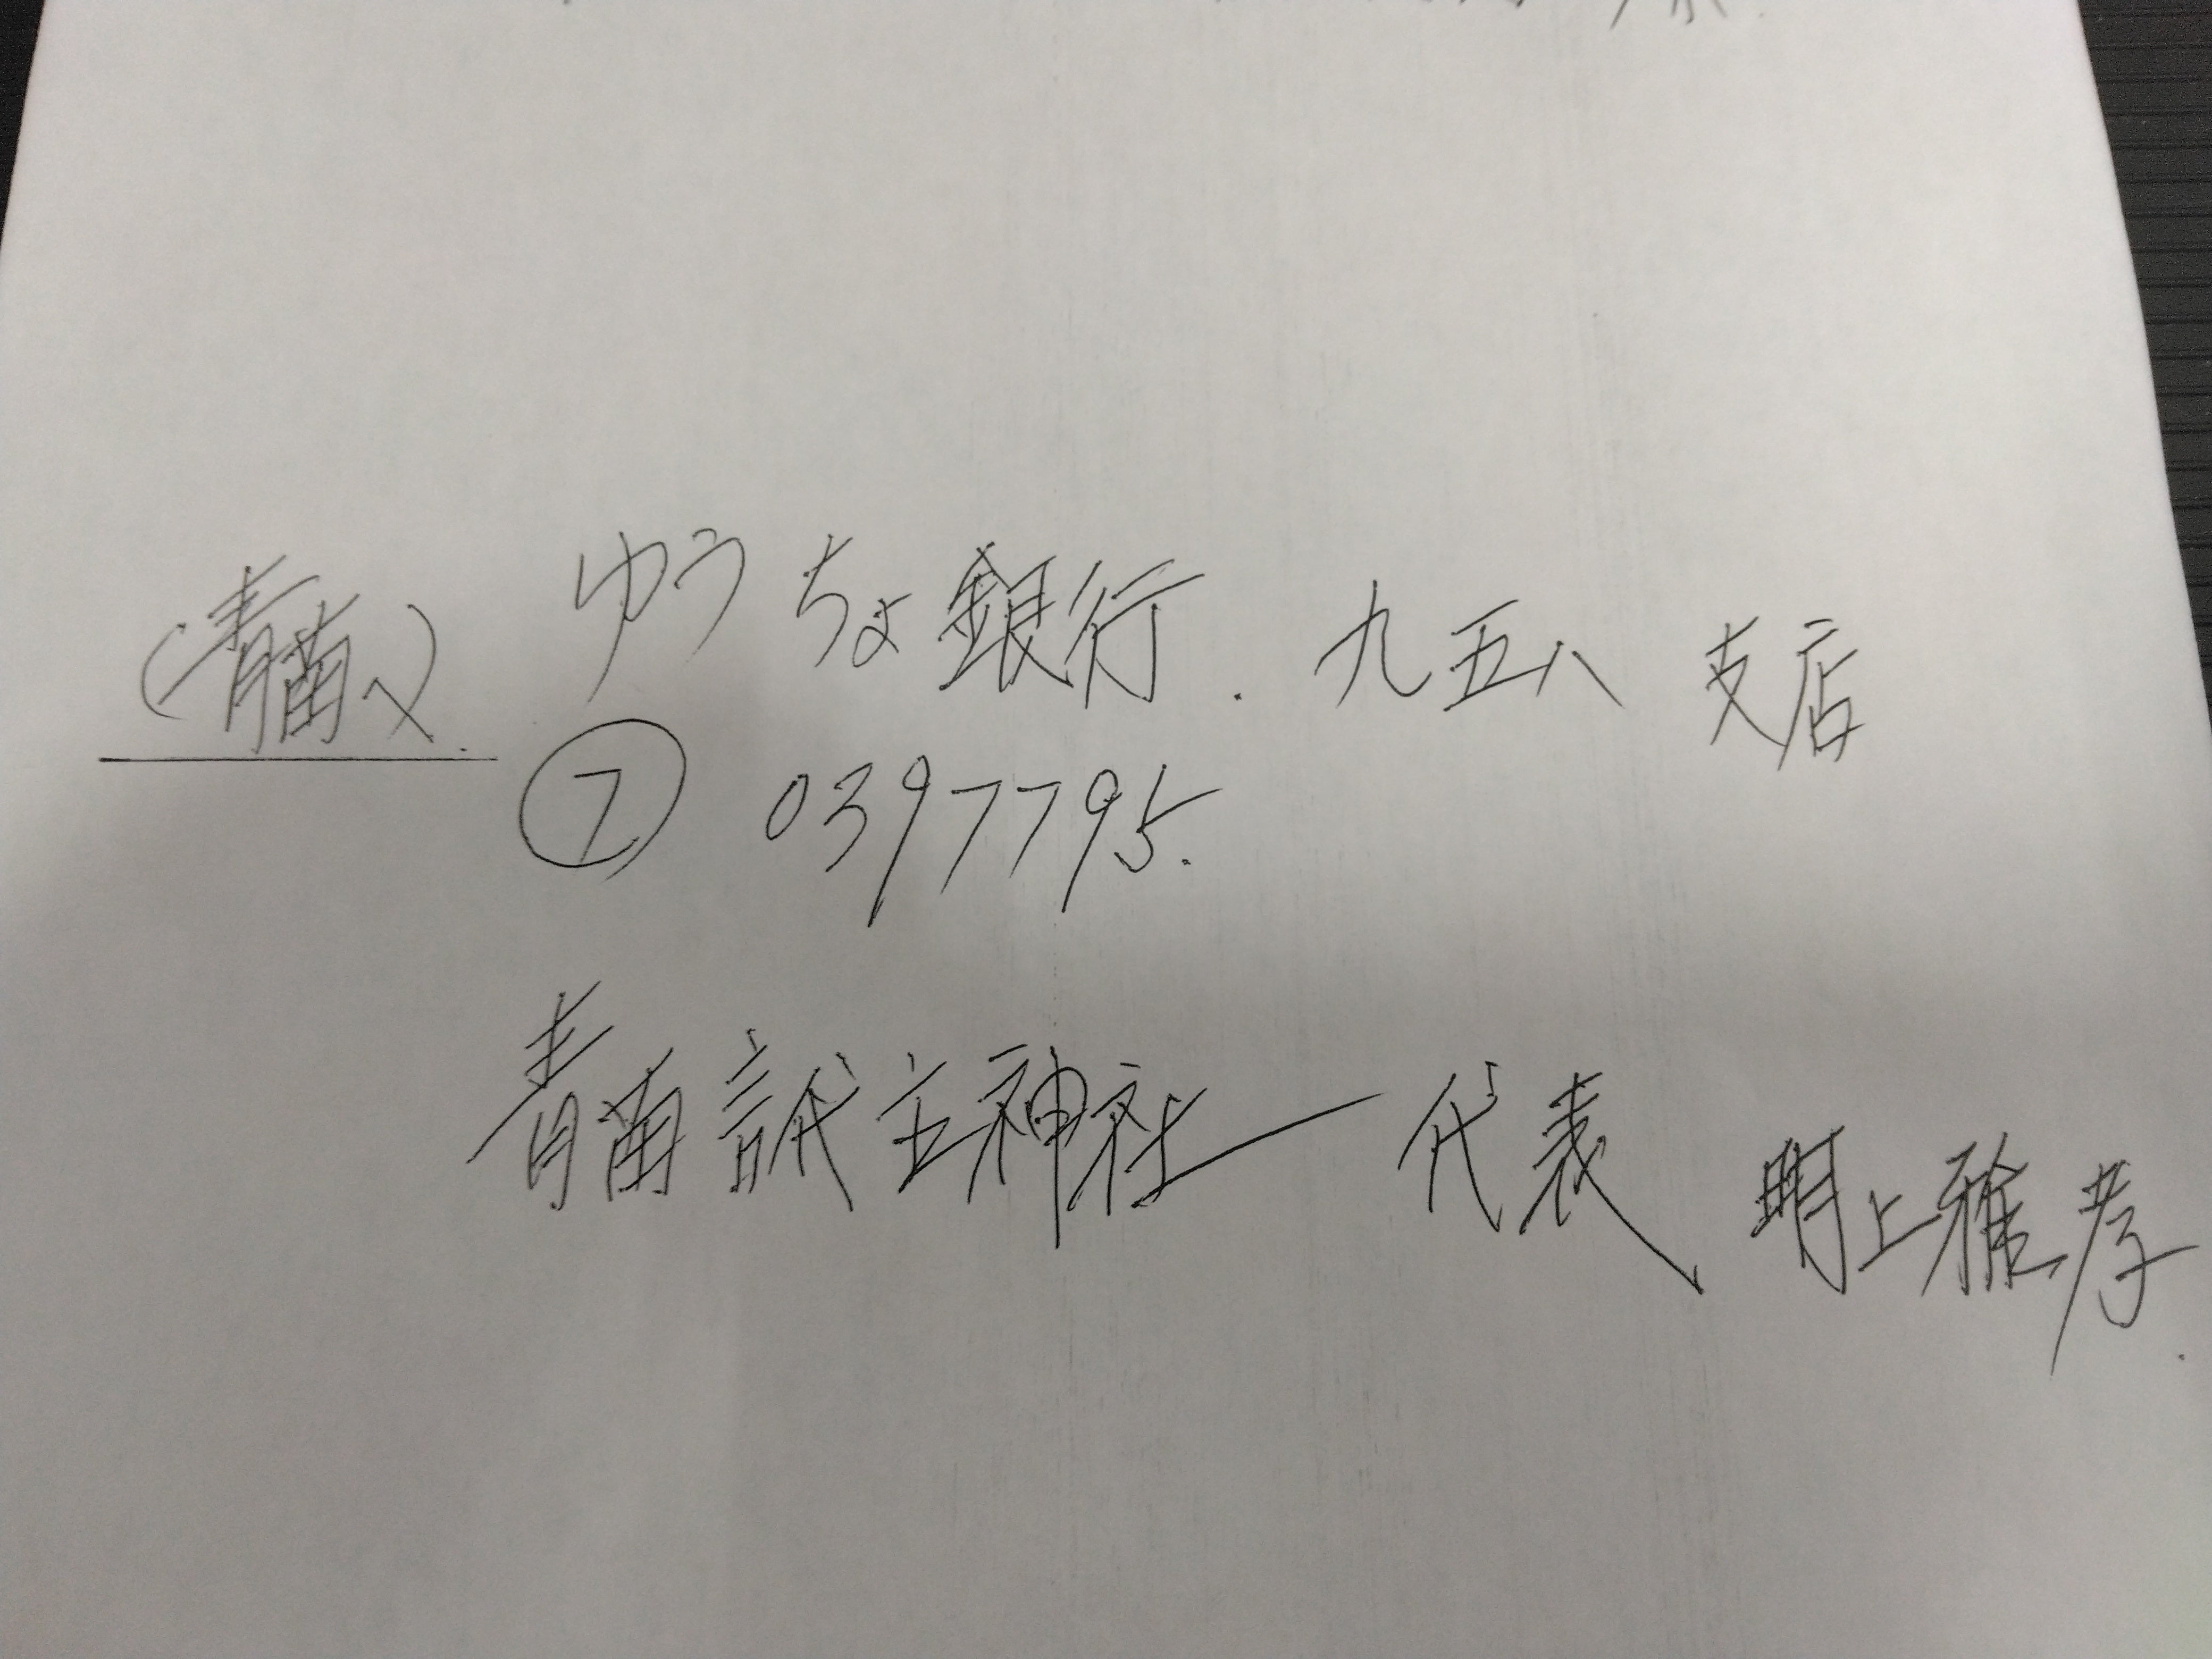 (青南へ) ゆうちょ銀行. 九五八 支店
⑦ 0397795.
青南 主神社 代表 明上雅孝